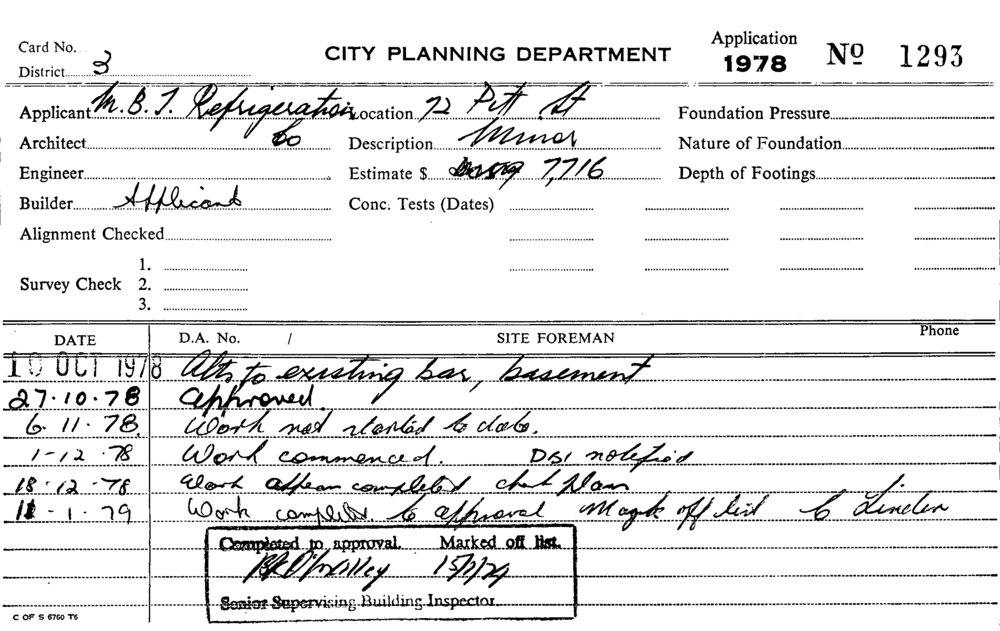 Card No.
CITY PLANNING DEPARTMENT
Application
1978
Nº 1293
District 3
Applicant M.B.T. Refrigeration Co
Location 72 Pitt St
Foundation Pressure
Architect
Description Minor
Nature of Foundation
Engineer
Estimate $ 7,716
Depth of Footings
Builder Applicant
Conc. Tests (Dates)
Alignment Checked
Survey Check 1.
2.
3.
DATE D.A. No. / SITE FOREMAN Phone
10 OCT 1978 Alts to existing bar, basement
27·10·78 Approved.
6·11·78. Work not started to date.
1-12·78 Work commenced. DSI notified
18·12·78 Work appears completed check plan
11·1·79 Work completed to approval Mark off list C Linden
Completed to approval. Marked off list.
15/1/79
Senior Supervising Building Inspector
C OF S 6760 T6